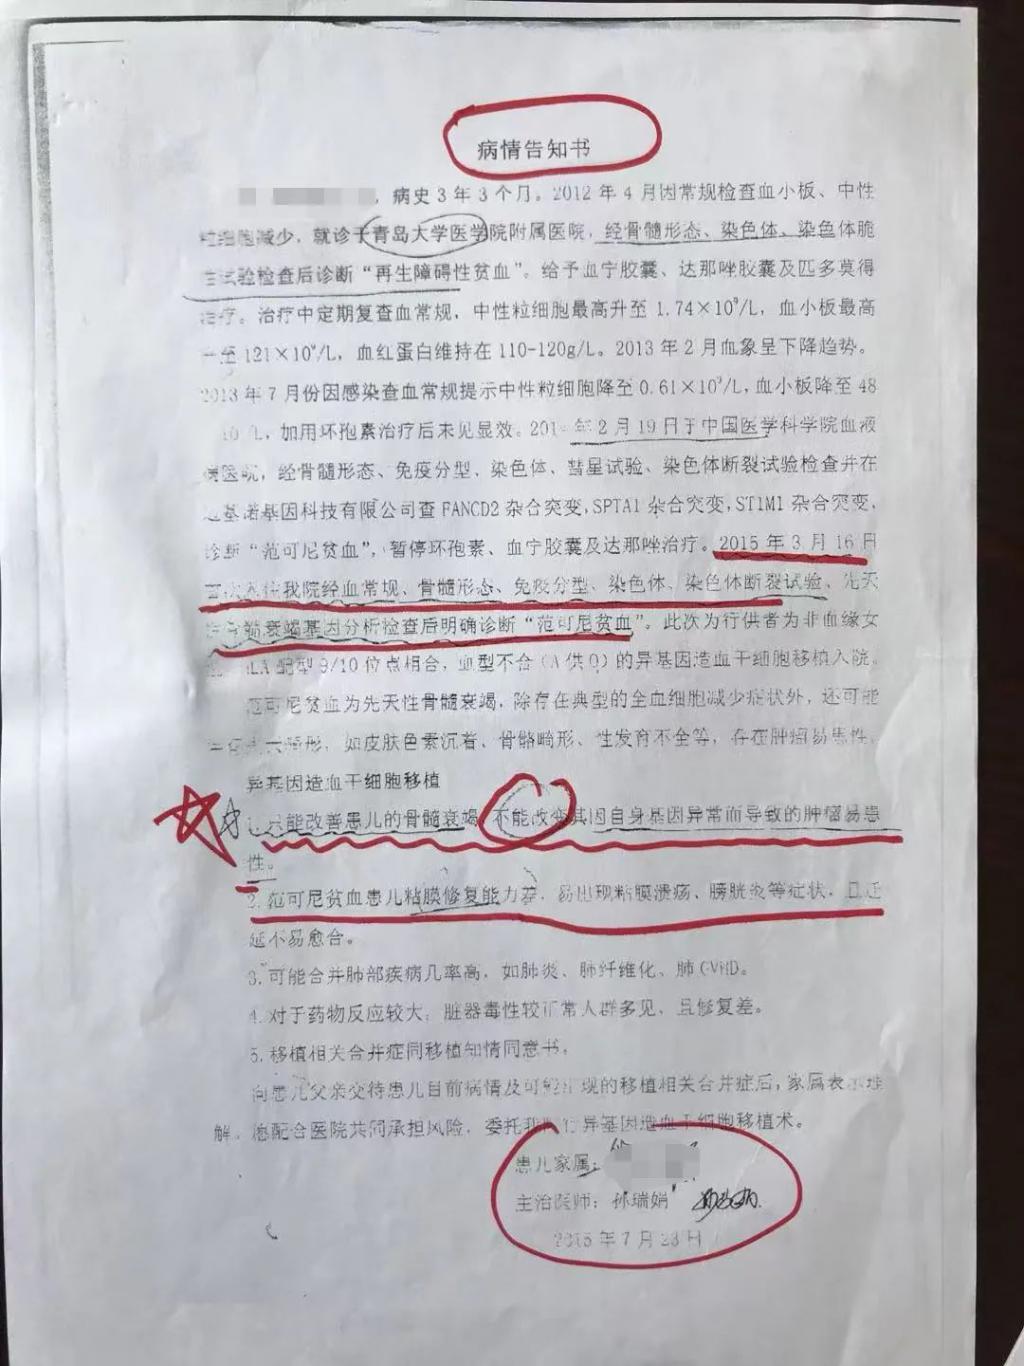 病情告知书
，病史3年3个月。2012年4月因常规检查血小板、中性
粒细胞减少，就诊于青岛大学医学院附属医院，经骨髓形态、染色体、染色体脆
性试验检查后诊断“再生障碍性贫血”。给予血宁胶囊、达那唑胶囊及匹多莫得
治疗。治疗中定期复查血常规，中性粒细胞最高升至1.74×10⁹/L，血小板最高
至121×10⁹/L，血红蛋白维持在110-120g/L。2013年2月血象呈下降趋势。
2013年7月份因感染查血常规提示中性粒细胞降至0.61×10⁹/L，血小板降至48
/L，加用环孢素治疗后未见显效。201 年2月19日于中国医学科学院血液
病医院，经骨髓形态、免疫分型、染色体、彗星试验、染色体断裂试验检查并在
基诺基因科技有限公司查FANCD2杂合突变，SPTA1杂合突变，STIM1杂合突变，
诊断“范可尼贫血”，暂停环孢素、血宁胶囊及达那唑治疗。2015年3月16日
我院经血常规、骨髓形态、免疫分型、染色体、染色体断裂试验、先天
髓衰竭基因分析检查后明确诊断“范可尼贫血”。此次为行供者为非血缘女
HLA配型9/10位点相合，血型不合（A供O）的异基因造血干细胞移植入院。
范可尼贫血为先天性骨髓衰竭，除存在典型的全血细胞减少症状外，还可能
畸形，如皮肤色素沉着、骨骼畸形、性发育不全等，存在肿瘤易患性。
异基因造血干细胞移植
1.只能改善患儿的骨髓衰竭，不能改变其因自身基因异常而导致的肿瘤易患
性。
2.范可尼贫血患儿粘膜修复能力差，易出现粘膜溃疡、膀胱炎等症状，且迁
延不易愈合。
3.可能合并肺部疾病几率高，如肺炎、肺纤维化、肺GVHD。
4.对于药物反应较大，脏器毒性较正常人群多见，且修复差。
5.移植相关合并症同移植知情同意书。
向患儿父亲交待患儿目前病情及可能出现的移植相关合并症后，家属表示理
解，愿配合医院共同承担风险，委托我院行异基因造血干细胞移植术。
患儿家属：
主治医师：孙瑞娟
2015年7月23日